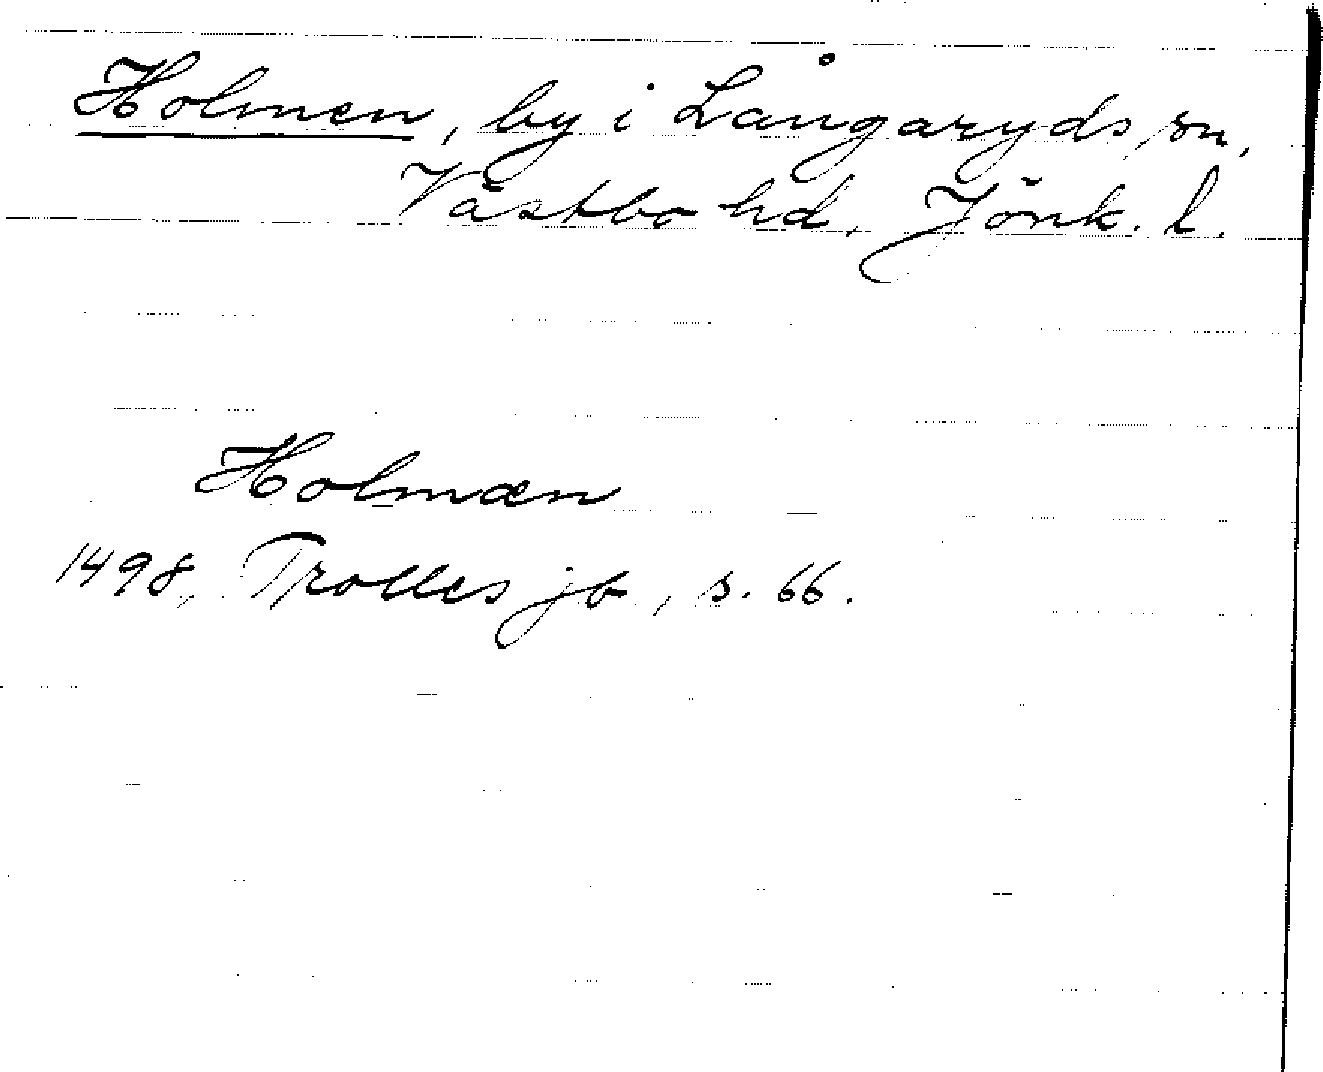 Holmen, by i Långaryds sn,
Västbo hd, Jönk. l.
Holmæn
1498, Trolles jb, s. 66.